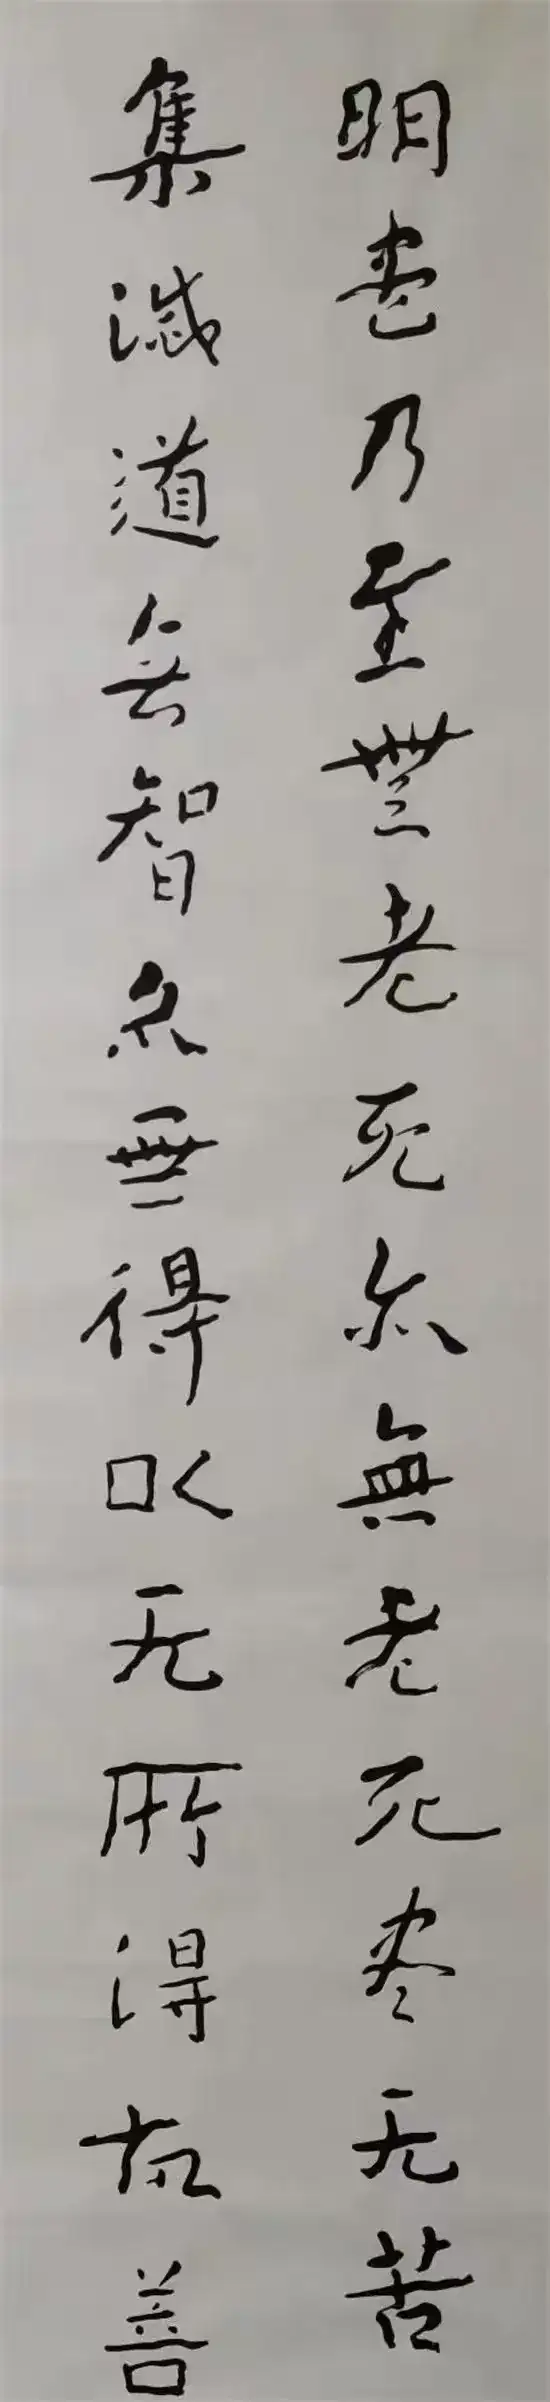 明盡乃至無老死亦無老死尽无苦
集滅道無智亦無得以无所得故善